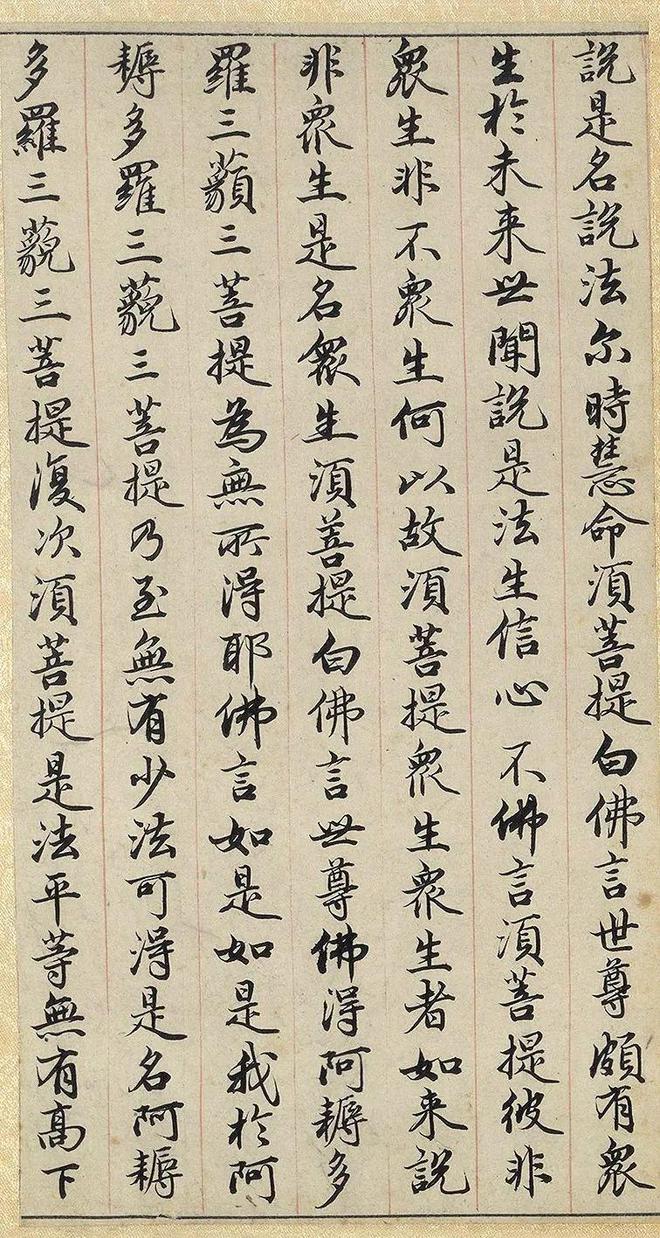 說是名說法尒時慧命須菩提白佛言世尊頗有衆
生於未来世聞說是法生信心不佛言須菩提彼非
衆生非不衆生何以故須菩提衆生衆生者如来說
非衆生是名衆生須菩提白佛言世尊佛得阿耨多
羅三藐三菩提為無所得耶佛言如是如是我於阿
耨多羅三藐三菩提乃至無有少法可得是名阿耨
多羅三藐三菩提復次須菩提是法平等無有高下